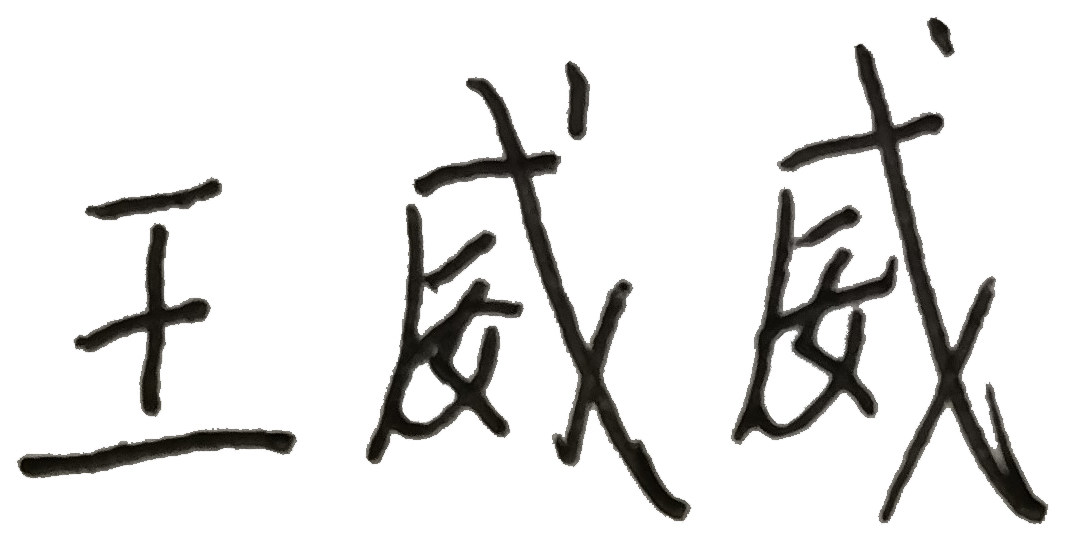 王威威